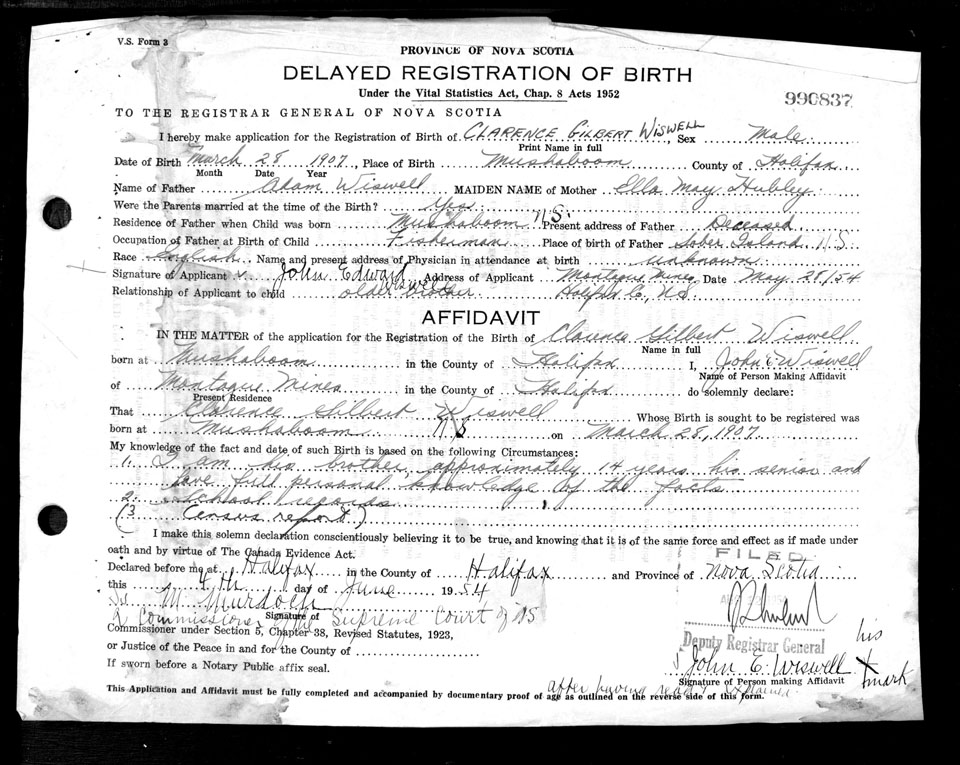 V.S. Form 3
PROVINCE OF NOVA SCOTIA
DELAYED REGISTRATION OF BIRTH
Under the Vital Statistics Act, Chap. 8 Acts 1952
990837
TO THE REGISTRAR GENERAL OF NOVA SCOTIA
I hereby make application for the Registration of Birth of CLARENCE GILBERT WISWELL, Sex Male
Print Name in full
Date of Birth March 28 1907, Place of Birth Mushaboom County of Halifax
Month Date Year
Name of Father Adam Wiswell MAIDEN NAME of Mother Ella May Hubley
Were the Parents married at the time of the Birth? Yes
Residence of Father when Child was born Mushaboom N.S. Present address of Father Deceased
Occupation of Father at Birth of Child Fisherman Place of birth of Father Sober Island N.S.
Race English Name and present address of Physician in attendance at birth unknown
Signature of Applicant x John Edward Wiswell Address of Applicant Montague Mines, Date May 28/54
Relationship of Applicant to child older brother Halifax Co., N.S.
AFFIDAVIT
IN THE MATTER of the application for the Registration of the Birth of Clarence Gilbert Wiswell
Name in full
born at Mushaboom in the County of Halifax I, John E Wiswell
Name of Person Making Affidavit
of Montague Mines in the County of Halifax do solemnly declare:
Present Residence
That Clarence Gilbert Wiswell Whose Birth is sought to be registered was
born at Mushaboom NS on March 28, 1907
My knowledge of the fact and date of such Birth is based on the following Circumstances:
1. I am his brother approximately 14 years his senior and
have full personal knowledge of the facts
2. School records
(3 Census report)
I make this solemn declaration conscientiously believing it to be true, and knowing that it is of the same force and effect as if made under
oath and by virtue of The Canada Evidence Act.
FILED
Declared before me at Halifax in the County of Halifax and Province of Nova Scotia
this 4th day of June 1954
M Murdoch
Signature of
A Commissioner of the Supreme Court of NS
Commissioner under Section 5, Chapter 38, Revised Statutes, 1923,
or Justice of the Peace in and for the County of
Deputy Registrar General
If sworn before a Notary Public affix seal.
John E. Wiswell his X mark
Signature of Person making Affidavit
after having read & explained
This Application and Affidavit must be fully completed and accompanied by documentary proof of age as outlined on the reverse side of this form.